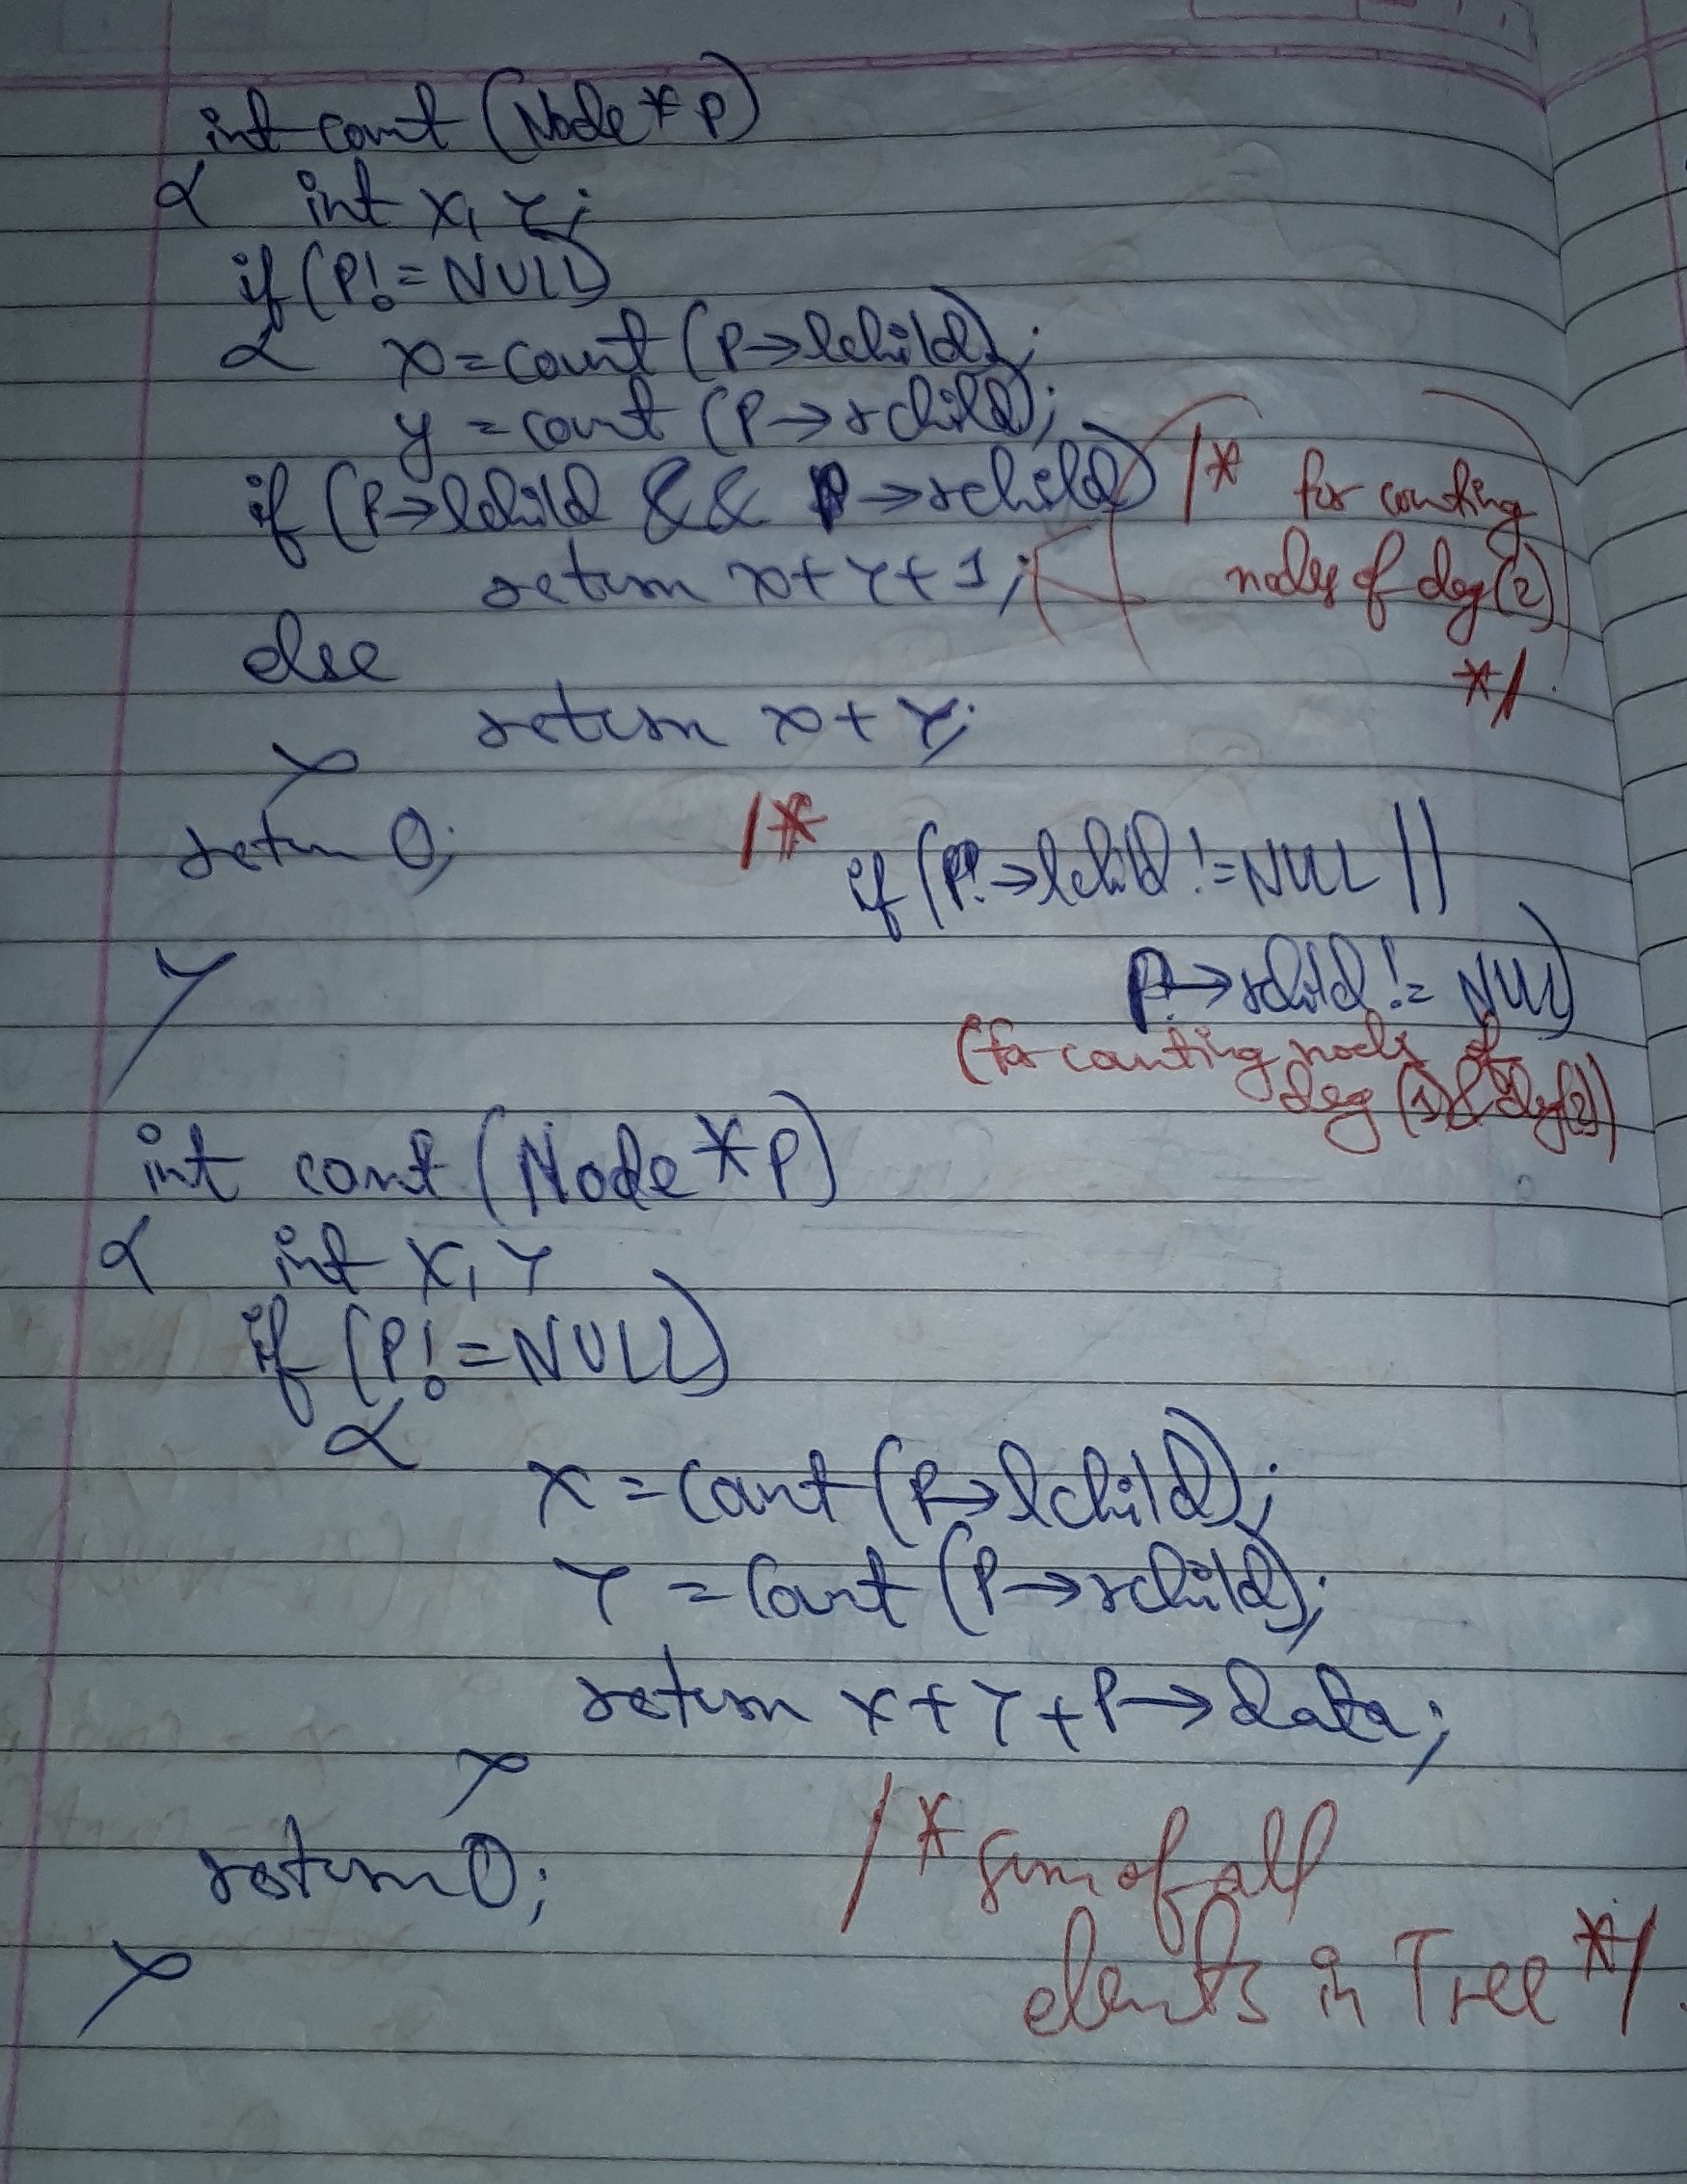 int count (Node * P)
{ int x, Y;
if (P! = NULL)
{ x = count (P→lchild);
y = count (P→rchild);
if (P→lchild && P→rchild) /* for counting
return x + Y + 1; nodes of deg(2)
else */
return x + Y;
}
return 0; /* if (P→lchild != NULL ||
P→rchild != NULL)
} (for counting nodes of
deg (1) & deg(2))
int count (Node * P)
{ int X, Y
if (P! = NULL)
{
X = Count (P→lchild);
Y = Count (P→rchild);
return X + Y + P→data;
}
return 0; /* sum of all
} elements in Tree */